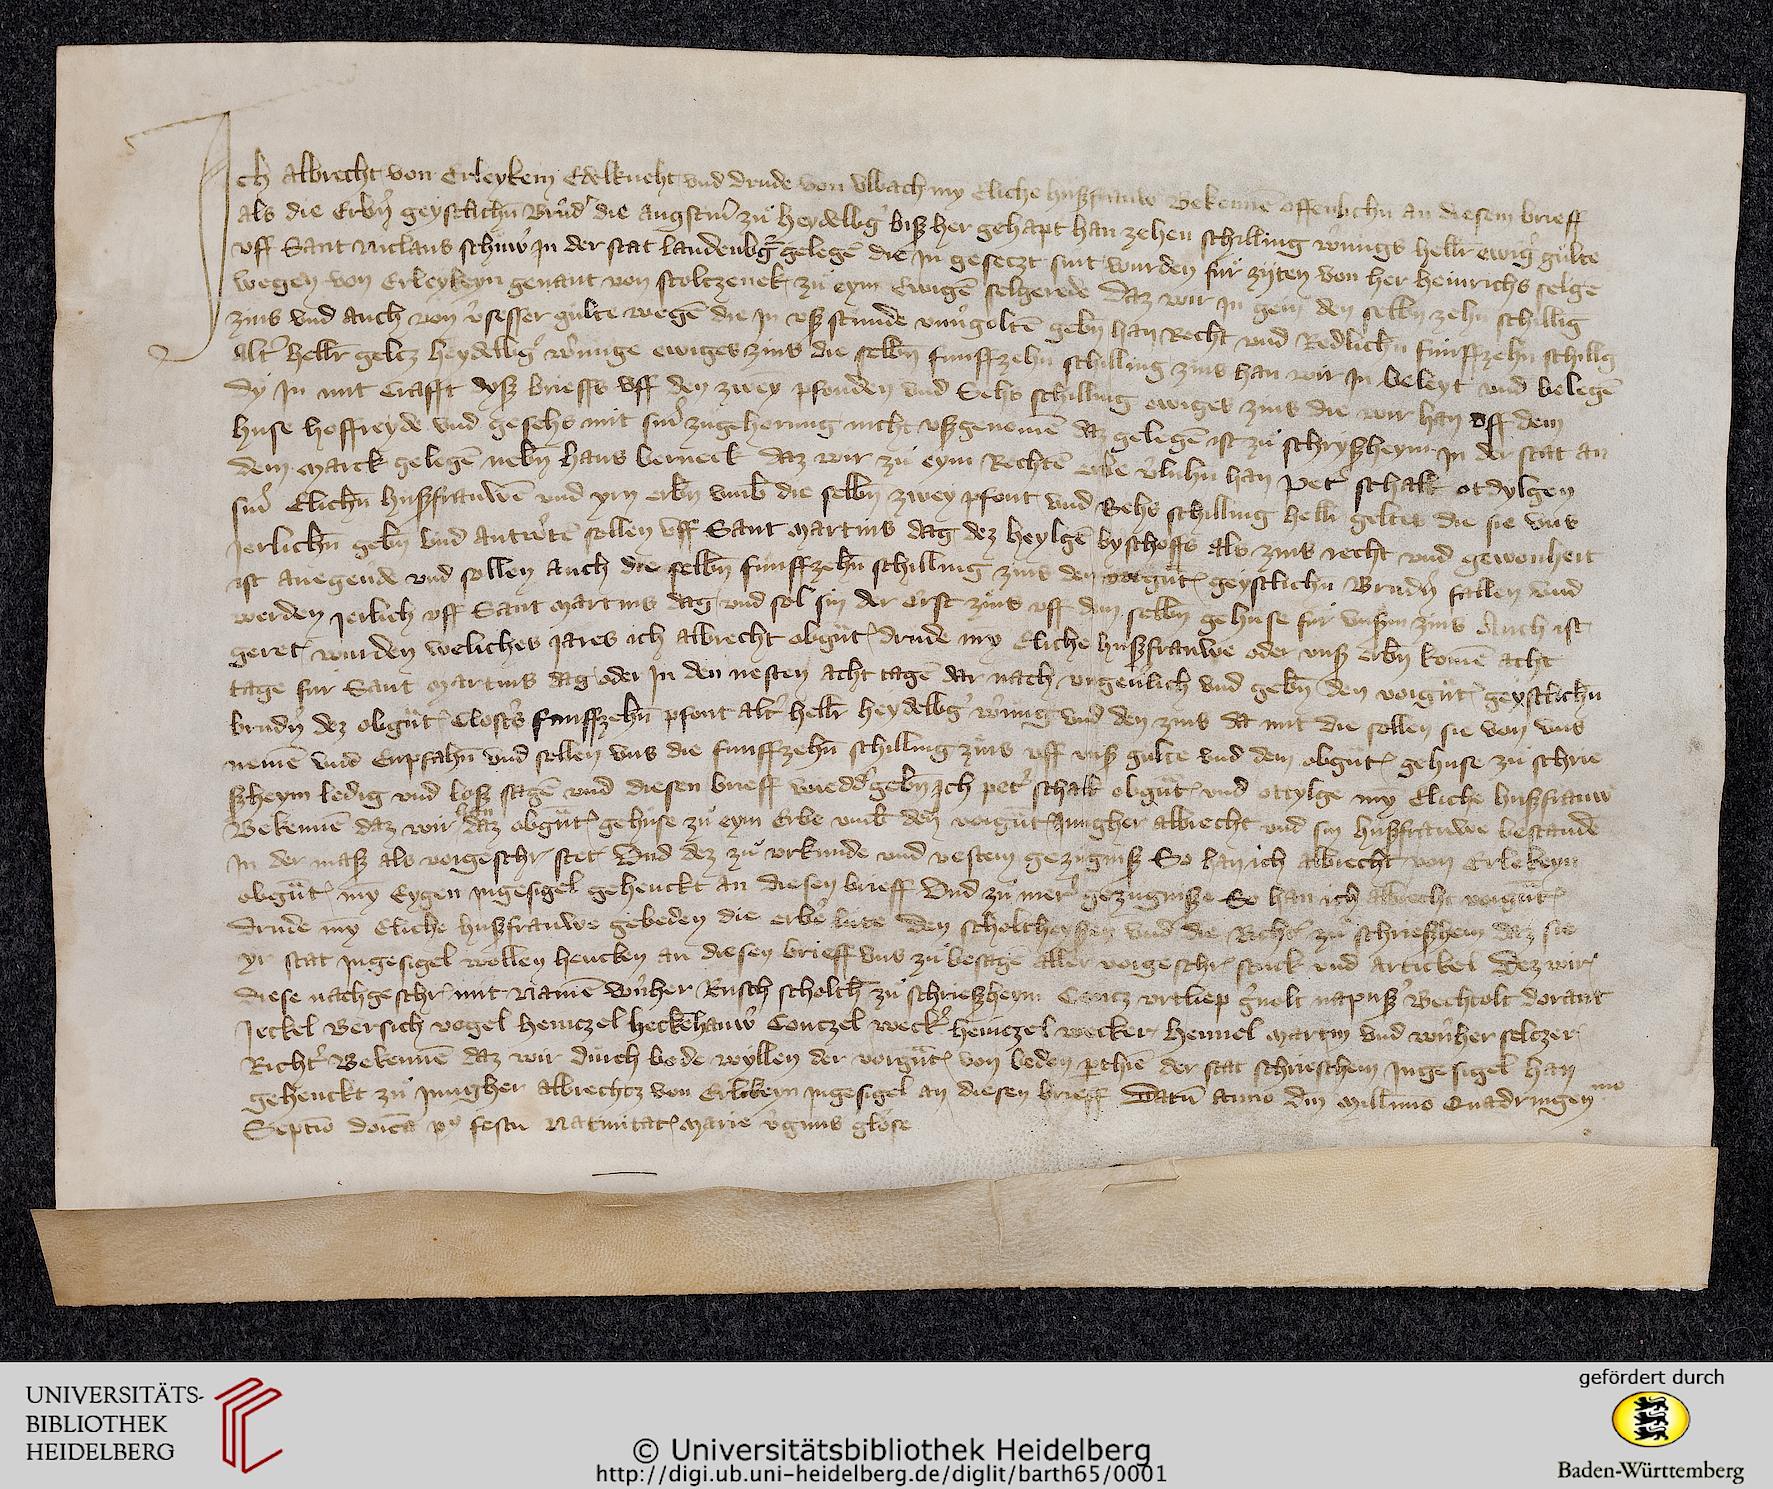 Ich Albrecht von Erleykem Edelkneht vnd Drude von Vlbach my Eliche hußfrauw Bekennē offenlichn̄ an diesem brieff
als die Erbn̄ geystlichn̄ Brud' die Augstin' zu heydelbg' biß her gehapt han zehen schilling w'ungs hellr ewig' gulte
vff Sant Niclaus schuw' in der stat laudenbg' gelegē die in gesetzt sint wurden fur zijten von her heinrichs selgē
wegen von Erleykeyn genant von stoltzenek zu eym Ewigē selgerede Daz wir in gein den selbn̄ zehn̄ schillig
zins vnd auch von gulte wegē die in vß stunde geb'n han Recht vnd Redlichn̄ funffzehn̄ schillg
alt' hellr geltz heydelbg' w'unge ewiges zins die selbn̄ funffzehn̄ schilling zins han wir in beleyt vnd belegē
dy in mit Crafft dyß brieffs vff den zwey pfonden vnd Sehs schilling ewiges zins die wir han vff dem
huse hoffreyde vnd gesehs mit sin' zugehorung nicht vßgenomē daz gelegē ist zu schryßheym in der stat an
dem Marck gelegē nebn̄ hans berneck daz wir zu eym Rechtē erbe v'luhn̄ han Pet' schalk otdylgen
sin' Elichn̄ hußfrauwē vnd yrn erbn̄ vmb die selbn̄ zwey pfont vnd Sehs schilling hellr geltes die sie vns
Jerlichn̄ gebn̄ vnd antw'tē sollen vff Sant Martins dag dez heylgē byschoffs als zins recht vnd gewonheit
ist vnd sollen auch die selbn̄ funffzehn̄ schilling zins den vorgn̄t geystlichn̄ Brudn̄ fallen vnd
werden Jerlich vff Sant Martins dag vnd sol sin der erst zins vff dem selbn̄ gehuse fur zins Auch ist
geret wurden weliches Jares ich Albrecht obgn̄t Drude my Eliche hußfrauwe oder vnß Erbn̄ komē acht
tage fur Sant Martins dag oder in den nesten acht tagē dar nach vngeu'lich vnd gebn̄ den vorgn̄t geystlichn̄
brudn̄ dez obgn̄t Clost's funffzehn̄ pfont alt' hellr heydelbg' w'ung vnd den zins da mit die sollen sie von vns
nemē vnd Enpfahn̄ vnd sollen vns die funffzehn̄ schilling zins vff vnß gulte vnd dem obgn̄t gehuse zu schrie
ßheym ledig vnd loß sagē vnd diesen brieff wiedd' gebn̄ Jch pet' schalk obgn̄t vnd ottylge my Eliche hußfrauw
Bekennē daz wir daz obgn̄t gehuse zu eym Erbe vmb den vorgn̄t Jungher Albrecht vnd sin hußfrauwe bestandē
in der maß als vorgeschr stet Vnd dez zu vrkunde vnd vestem gezugniß So han ich Albrecht von Erlekeyn
obgn̄t my Eygen Ingesigel gehenckt an diesen brieff Vnd zu mer' gezugnisse So han ich Albrecht vorgn̄t
Drude my Eliche hußfrauwe gebeden die erb'e lute den scholtheyssen vnd die Richt' zu schrießheim daz sie
yr stat Ingesigel wollen hencken an diesen brieff vns zu besagē aller vorgeschr stuck vnd Artickel Dez wir
diese nachgeschr mit Namē W'nher Rusch scholth zu schrießheym Contz
Jeckel Bersich vogel heinczel heckehauw' Conczel weck' heinczel wecker Hennel Martin vnd w'nher selczer
Richt' Bekennē daz wir durch bede wyllen der vorgn̄t von beden pthiē der stat schrieschem Ingesigel han
gehenckt zu Jungher Albrechtz von Erlekeyn Ingesigel an diesen brieff Datū Anno dn̄i Millimo Quadringen mo
Septio doīca festu Natiuitat Marie v'ginis gl'ose
UNIVERSITÄTS-
BIBLIOTHEK
HEIDELBERG
© Universitätsbibliothek Heidelberg
http://digi.ub.uni-heidelberg.de/diglit/barth65/0001
gefördert durch
Baden-Württemberg